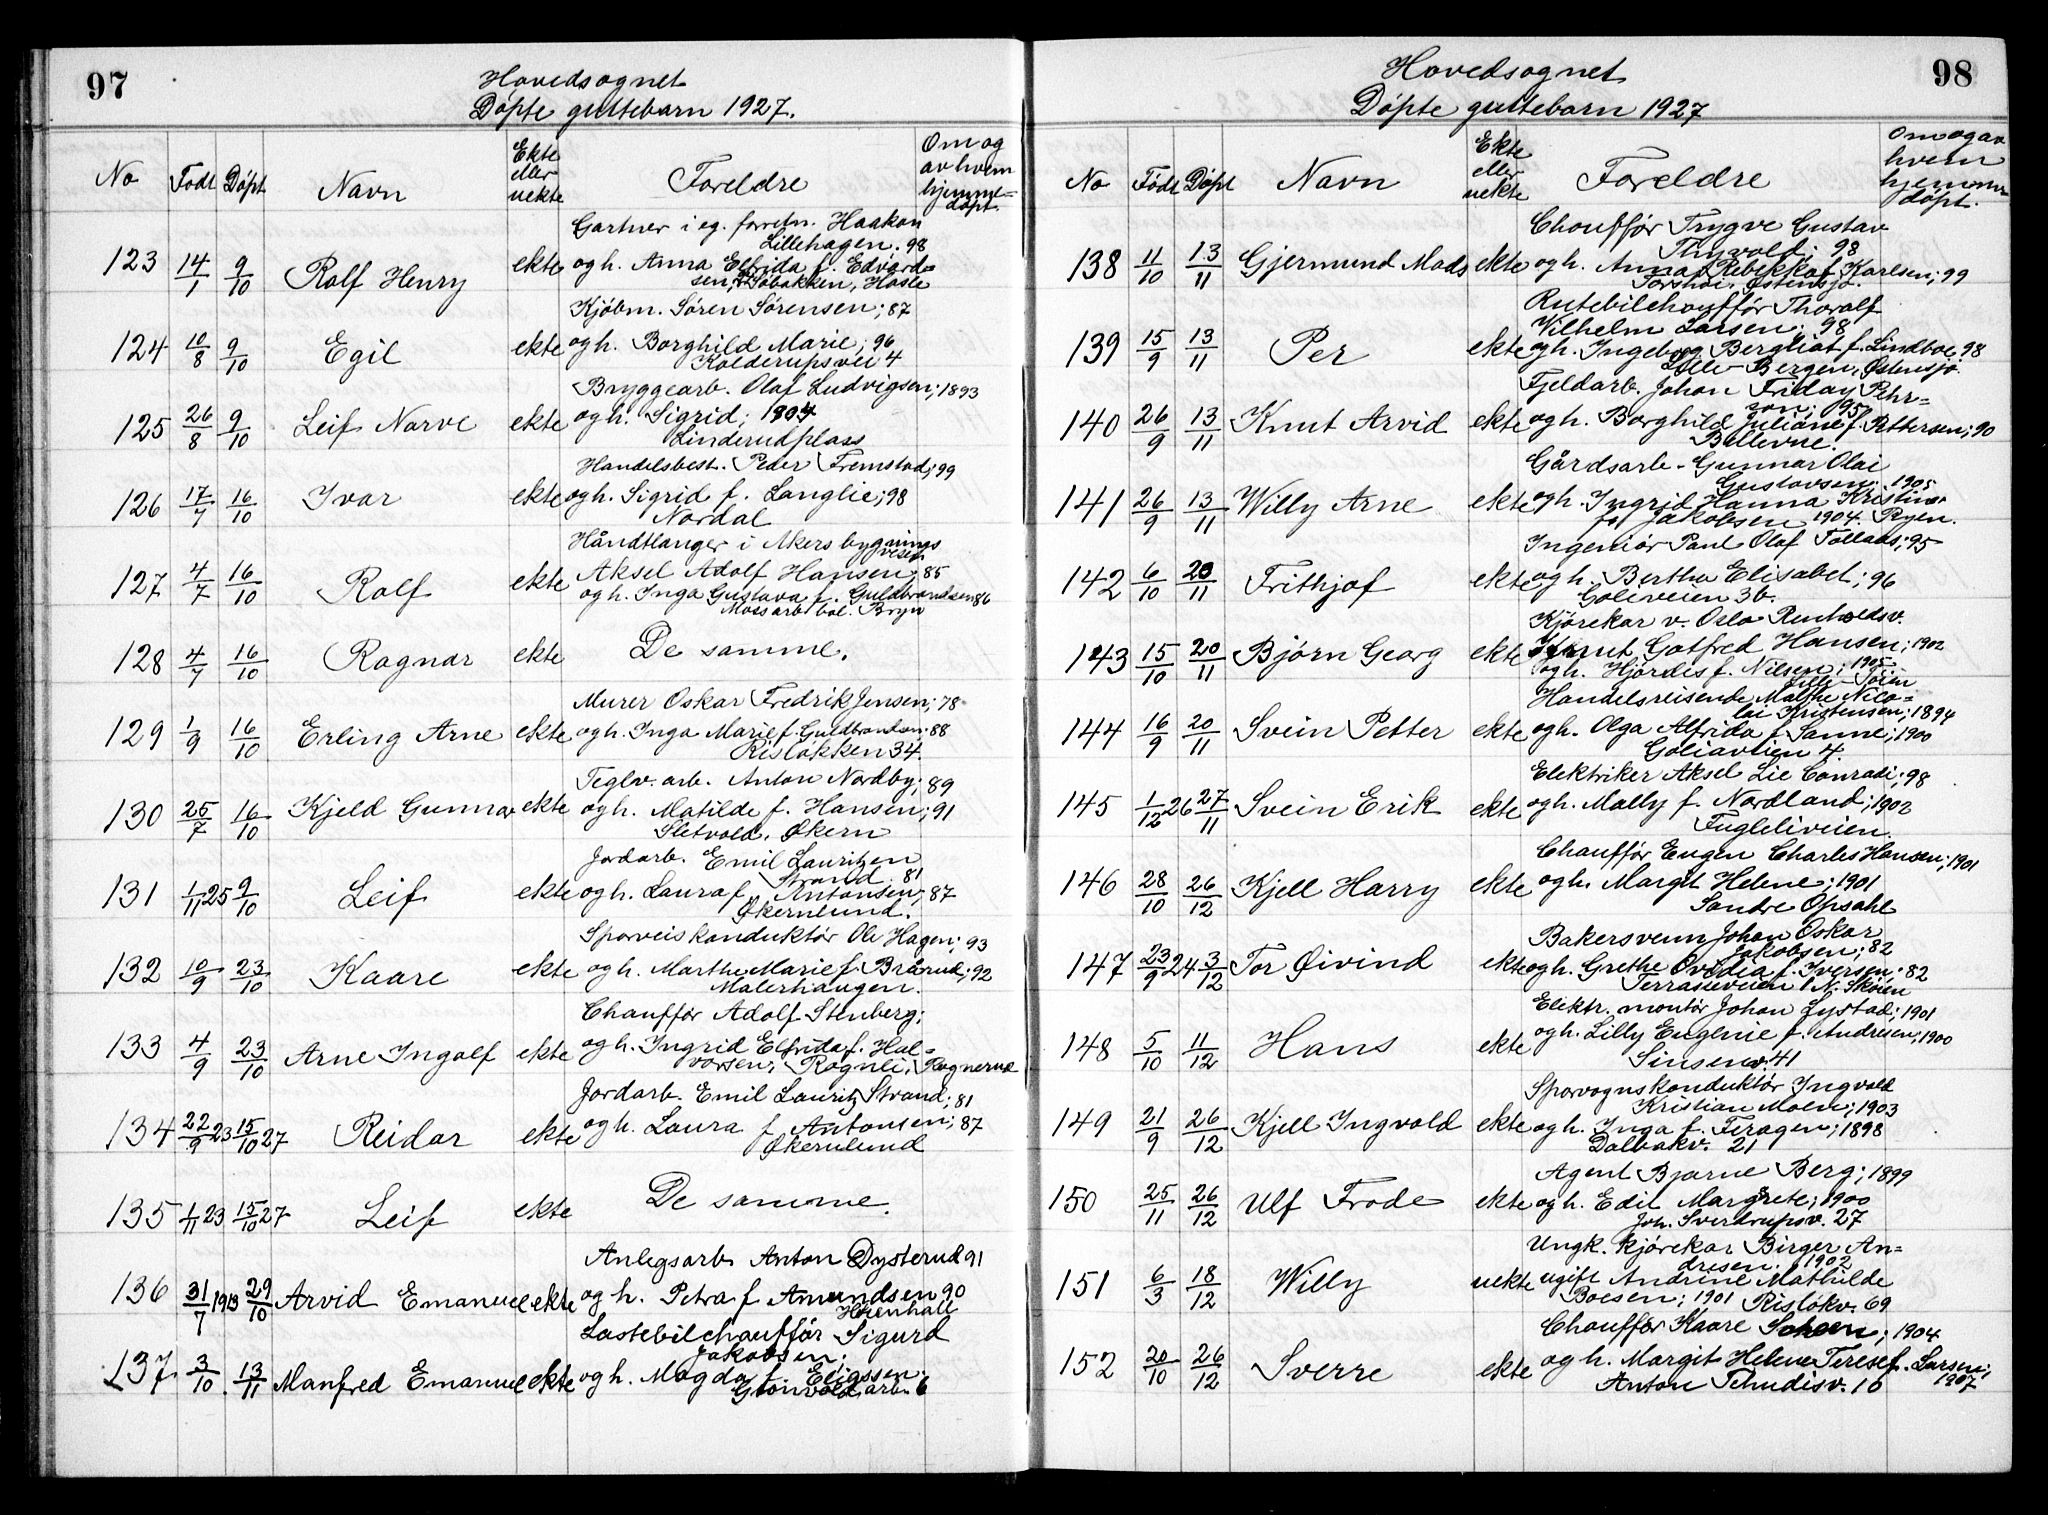 97
Hovedsognet
Døpte guttebarn 1927.
No Født Døpt Navn Ekte eller uekte Foreldre Om og av hvem hjemme=døpt.
Gartner i eg. forretn. Haakon
Lillehagen. 98
123 14/1 9/10 Rolf Henry ekte og h. Anna Elfrida f. Edvard=
sen, Hasle
Kjøbm. Søren Sørensen; 87
124 10/8 9/10 Egil ekte og h. Borghild Marie; 96
Kalderupsvei 4
Bryggearb. Olaf Ludvigsen; 1893
125 26/8 9/10 Leif Narve ekte og h. Sigrid; 1904
Linderudplass
Handelsbest. Peder Fremstad; 99
126 17/7 16/10 Ivar ekte og h. Sigrid f. Langlie; 98
Nordal
Håndtlanger i Akers bygnings
vesen
127 4/7 16/10 Rolf ekte Aksel Adolf Hansen; 85
og h. Inga Gustava f. Guldbrandsen 86
Mossarb bol. Bryn
128 4/7 16/10 Ragnar ekte De samme.
Murer Oskar Fredrik Jensen; 78
129 1/9 16/10 Erling Arne ekte og h. Inga Marie f. Guldbrandsen; 88
Risløkken 34.
Teglv. arb. Anton Nordby; 89
130 25/7 16/10 Kjeld Gunnar ekte og h. Matilde f. Hansen; 91
Sletvold, Økern
Jordarb. Emil Lauritzen
Strand. 81
131 1/11 25 9/10 Leif ekte og h. Laura f. Antonsen; 87
Økernlund.
Sporveiskonduktør Ole Hagen; 93
132 10/9 23/10 Kaare ekte og h. Marthe Marie f. Brårud; 92
Malerhaugen.
Chauffør Adolf Stenberg;
133 4/9 23/10 Arne Ingolf ekte og h. Ingrid Elfrida f. Hal=
vorsen; Rognli, Rognerud
Jordarb. Emil Lauritz Strand; 81
134 22/9 23 15/10 27 Reidar ekte og h. Laura f. Antonsen; 87
Økernlund
135 1/11 23 15/10 27 Leif ekte De samme.
Anlegsarb Anton Dysterud 91
136 31/7 1913 29/10 Arvid Emanuel ekte og h. Petra f Amundsen 90
Høienhall
Lastebilchauffør Sigurd
Jakobsen;
137 3/10 13/11 Manfred Emanuel ekte og h. Magda f. Eliassen;
arb. 6
98
Hovedsognet
Døpte guttebarn 1927
No Født Døpt Navn Ekte eller uekte Foreldre Om og av hvem hjemme døpt.
Chauffør Trygve Gustav
Thyvold; 98
138 11/10 13/11 Gjermund Mads ekte og h. Anna Rebekka f. Karlsen; 99
Torshøi, Østensjø.
Rutebilchauffør Thoralf
Vilhelm Larsen; 98
139 15/9 13/11 Per ekte og h. Ingeborg Bergliot f. Lindboe 98
Lille Bergen, Østensjø.
Fjeldarb. Johan Friday Pehr=
son; 95
140 26/9 13/11 Knut Arvid ekte og h. Borghild Juliane f. Pettersen; 90
Bellevue.
Gårdsarb. Gunnar Olai
Gustavsen; 1905
141 26/9 13/11 Willy Arne ekte og h. Ingrid Hanna Kristine
f. Jakobsen 1904. Ryen.
Ingeniør Paul Olaf Tollaas; 95
142 6/10 20/11 Frithjof ekte og h. Bertha Elisabet; 96
Goliveien 3b.
Kjørekar v. Oslo Renholdsv.
143 15/10 20/11 Bjørn Georg ekte Knut Gotfred Hansen; 1902
og h. Hjørdis f. Nilsen; 1905
Lille-Tøien
Handelsreisende Malthe Nico=
lai Kristensen; 1894
144 16/9 20/11 Svein Petter ekte og h. Olga Alfrida f. Sanne; 1900
Goliaveien 4.
Elektriker Aksel Lie Conradi; 98
145 1/12 26 27/11 Svein Erik ekte og h. Mally f. Nordland; 1902
Fugleliveien.
Chauffør Eugen Charles Hansen; 1901
146 28/10 26/12 Kjell Harry ekte og h. Margit Helene; 1901
Søndre Opsahl
Bakersvenn Johan Oskar
Jakobsen; 82
147 23/9 24 3/12 Tor Øivind ekte og h. Grethe Ovedia f. Iversen; 82
Terrasseveien N. Skøien
Elektr. montør Johan Lystad; 1901
148 5/10 11/12 Hans ekte og h. Lilly Eugenie f. Andresen; 1900
Sinsenv. 41
Sporvognskonduktør Ingvald
Kristian Moen; 1903
149 21/9 26/12 Kjell Ingvald ekte og h. Inga f. Feragen; 1898
Dalbakv. 21
Agent Bjarne Berg; 1899
150 25/11 26/12 Ulf Frode ekte og h. Edil Margrete; 1900
Joh. Sverdrupsv. 27
Ungk. kjørekar Birger An=
dresen; 1902
151 6/3 18/12 Willy uekte ugift Andrine Mathilde
Boesen; 1901 Risløkv. 69
Chauffør Kaare ; 1904
152 20/10 26/12 Sverre ekte og h. Margit Helene Terese f. Larsen;
1907
Anton Tchudisv. 10